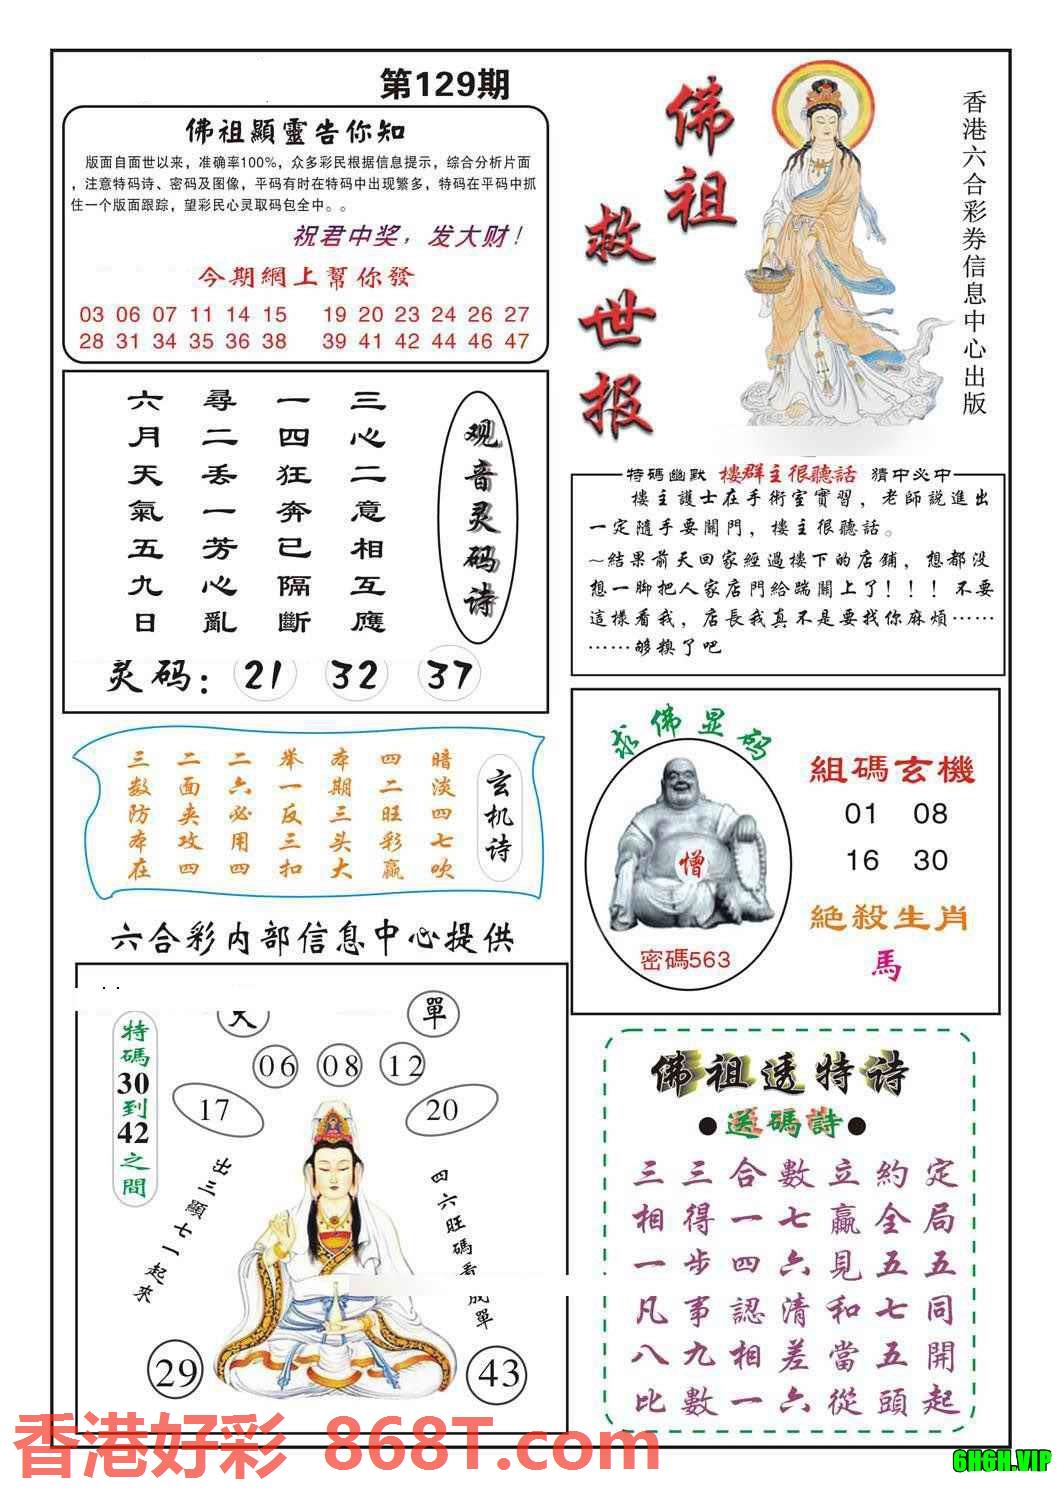 第129期
佛祖顯靈告你知
版面自面世以来，准确率100%，众多彩民根据信息提示，综合分析片面
，注意特码诗、密码及图像，平码有时在特码中出现繁多，特码在平码中抓
住一个版面跟踪，望彩民心灵取码包全中。。
祝君中奖，发大财！
今期網上幫你發
03 06 07 11 14 15 19 20 23 24 26 27
28 31 34 35 36 38 39 41 42 44 46 47
佛祖
救世报
香港六合彩券信息中心出版
观音灵码诗
三心二意相互應
一四狂奔已隔斷
尋二丢一芳心亂
六月天氣五九日
灵码：21 32 37
特碼幽默 樓群主很聽話 猜中必中
樓主護士在手術室實習，老師説進出
一定隨手要關門，樓主很聽話。
～结果前天回家經過樓下的店鋪，想都没
想一脚把人家店門給踹關上了！！！不要
這樣看我，店長我真不是要找你麻煩……
……够糗了吧
玄机诗
暗淡四七吹
四二旺彩赢
本期三头大
举一反三扣
二六必用四
二面夹攻四
三数防本在
求佛显码
僧
密碼563
組碼玄機
01 08
16 30
絶殺生肖
馬
六合彩内部信息中心提供
單
06 08 12
17 20
特碼30到42之間
出三顯七一起來
四六旺碼看成單
29 43
佛祖透特诗
●送碼詩●
三三合數立約定
相得一七贏全局
一步四六見五五
凡事認清和七同
八九相差當五開
比數一六從頭起
香港好彩 868T.com
6H6H.VIP